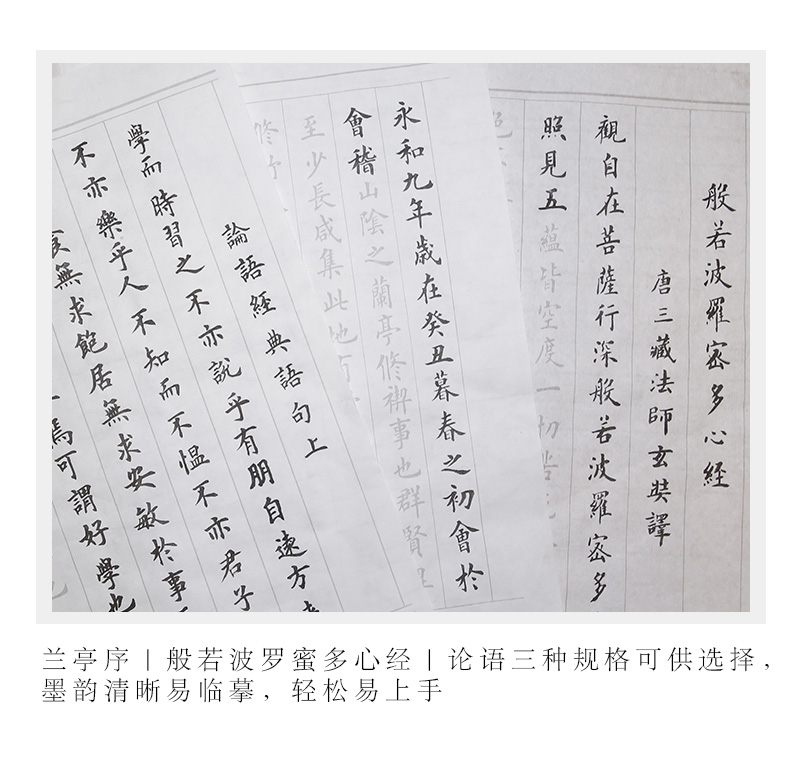 般若波羅密多心經
唐三藏法師玄奘譯
觀自在菩薩行深般若波羅密多
照見五蘊皆空度一切苦
永和九年歲在癸丑暮春之初會於
會稽山陰之蘭亭脩禊事也群賢
至少長咸集此地有
論語經典語句上
學而時習之不亦說乎有朋自遠方
不亦樂乎人不知而不慍不亦君子
食無求飽居無求安敏於事
焉可謂好學也
兰亭序丨般若波罗蜜多心经丨论语三种规格可供选择，
墨韵清晰易临摹，轻松易上手